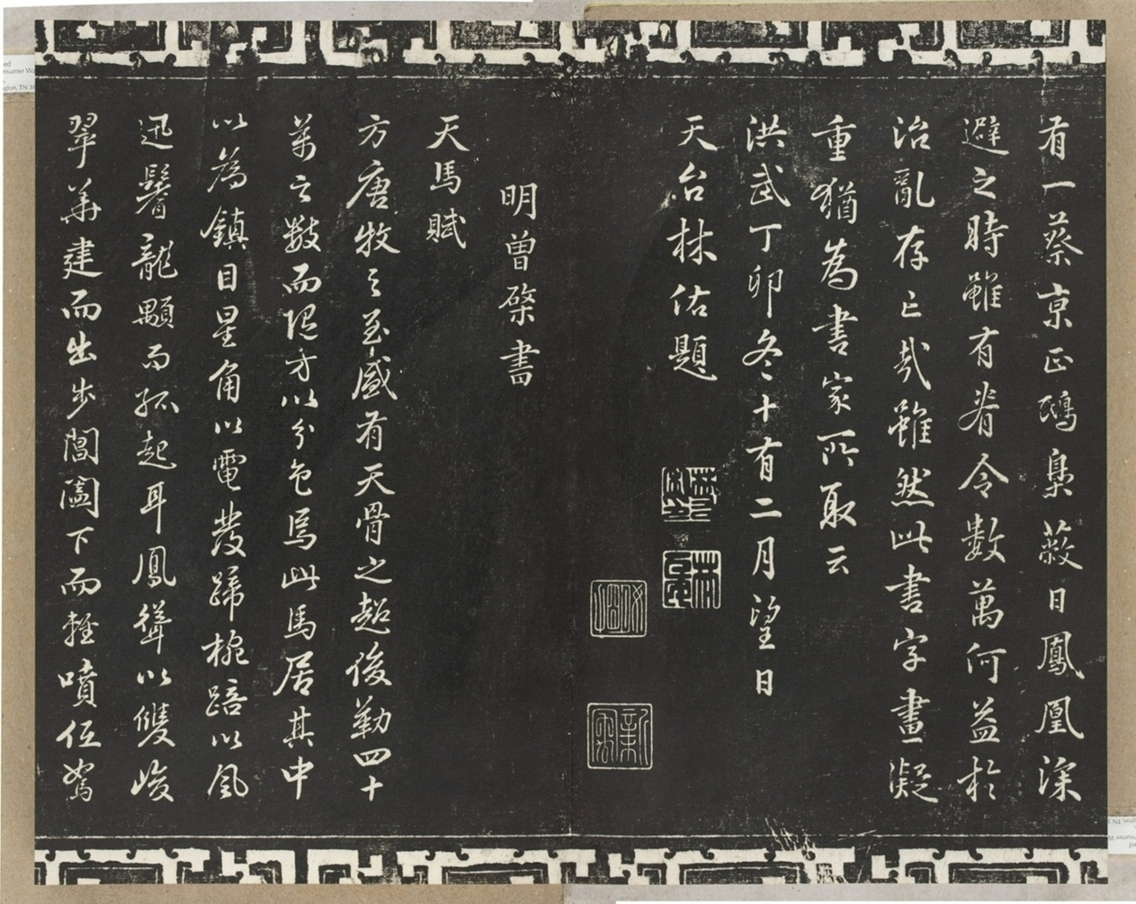 有一蔡京正鴟梟蔽日鳳凰深
避之時雖有脊令數萬何益於
治亂存亡哉雖然此書字畫凝
重猶為書家所取云
洪武丁卯冬十有二月望日
天台林佑題
明曾棨書
天馬賦
方唐牧之至盛有天骨之超俊勒四十
萬之數而隨方以分色焉此馬居其中
以為鎮目星角以電發蹄椀踣以風
迅鬐龍顒而孤起耳鳳聳以雙峻
翠華建而出步閶闔下而輕噴低駑